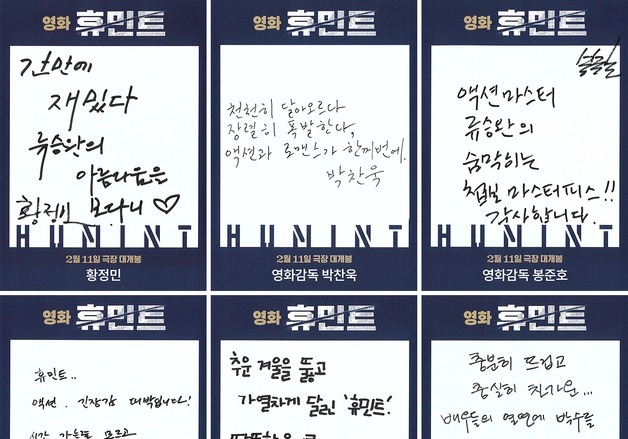 영화 휴민트
간만에
재밌다
류승완의
아름다움을
황정민 보다니 ♡
HUMINT
2월 11일 극장 대개봉
황정민
영화 휴민트
천천히 달아오르다
장렬히 폭발한다,
액션과 로맨스가 한꺼번에.
박찬욱
HUMINT
2월 11일 극장 대개봉
영화감독 박찬욱
영화 휴민트
액션마스터
류승완의
숨막히는
첩보 마스터피스!!
감사합니다.
HUMINT
2월 11일 극장 대개봉
영화감독 봉준호
영화 휴민트
휴민트..
액션. 긴장감 대박입니다!
영화 휴민트
추운 겨울을 뚫고
가열차게 달린 '휴민트'!
영화 휴민트
충분히 뜨겁고
충실히 차가운...
배우들의 열연에 박수를